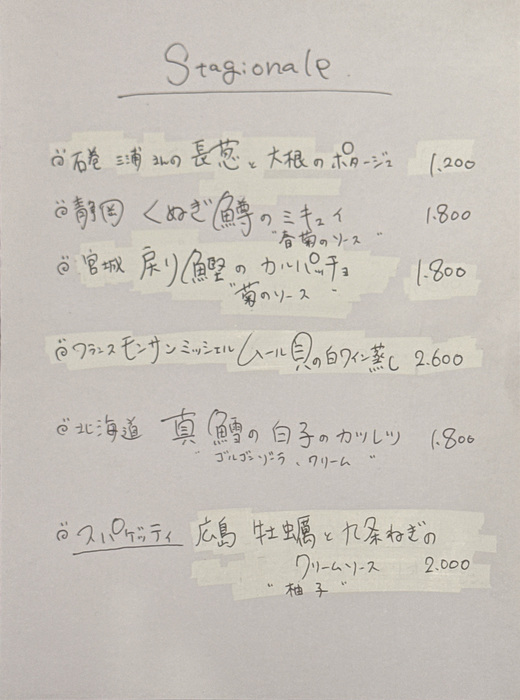 Stagionale
石巻 三浦さんの 長葱と大根のポタージュ 1.200
静岡 くぬぎ鱒のミキュイ 1.800
"春菊のソース"
宮城 戻り鰹のカルパッチョ 1.800
"菊のソース"
フランスモンサンミッシェルムール貝の白ワイン蒸し 2.600
北海道 真鱈の白子のカツレツ 1.800
"ゴルゴンゾーラ、クリーム"
スパゲッティ 広島 牡蠣と九条ねぎの
クリームソース 2.000
"柚子"